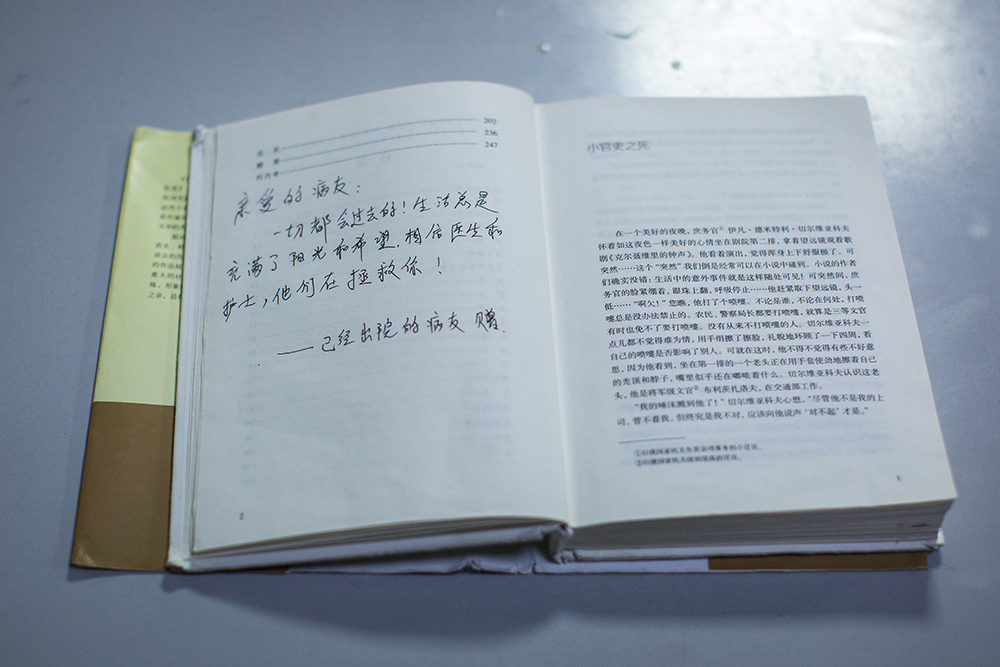 202
236
247
亲爱的病友：
一切都会过去的！生活总是
充满了阳光和希望，相信医生和
护士，他们在拯救你！
——已经出院的病友 赠.
2
小官吏之死
在一个美好的夜晚，庶务官① 伊凡·德米特利·切尔维亚科夫
怀着如这夜色一样美好的心情坐在剧院第二排，拿着望远镜观看歌
剧《克尔聂维里的钟声》。他看着演出，觉得浑身上下舒服极了。可
突然……这个“突然”我们倒是经常可以在小说中碰到。小说的作者
们确实没错：生活中的意外事件就是这样随处可见！可突然间，庶
务官的脸紧绷着，眼珠上翻，呼吸停止……他赶紧取下望远镜，头一
低……“啊欠！”您瞧，他打了个喷嚏。不论是谁，不论在何处，打喷
嚏总是没办法禁止的。农民、警察局长都要打喷嚏，就算是三等文官
有时也免不了要打喷嚏。没有从来不打喷嚏的人。切尔维亚科夫一
点儿都不觉得难为情，用手绢擦了擦脸，礼貌地环顾了一下四周，看
自己的喷嚏是否影响了别人。可就在这时，他不得不觉得有些不好意
思，因为他看到，坐在第一排的一个老头正在用手套使劲地擦着自己
的秃顶和脖子，嘴里似乎还在嘟哝着什么。切尔维亚科夫认识这老
头，他是将军级文官② 布利茨扎洛夫，在交通部工作。
“我的唾沫溅到他了！”切尔维亚科夫心想，“尽管他不是我的上
司，管不着我，但终究是我不对，应该向他说声‘对不起’才是。”
1